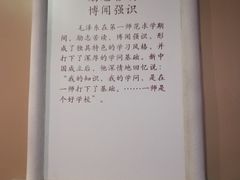 博闻强识
毛泽东在第一师范求学期
间，励志苦读、博闻强识，形
成了独具特色的学习风格，并
打下了深厚的学问基础。新中
国成立后，他深情地回忆说：
“我的知识、我的学问，是在
一师打下了基础。……一师是
个好学校”。